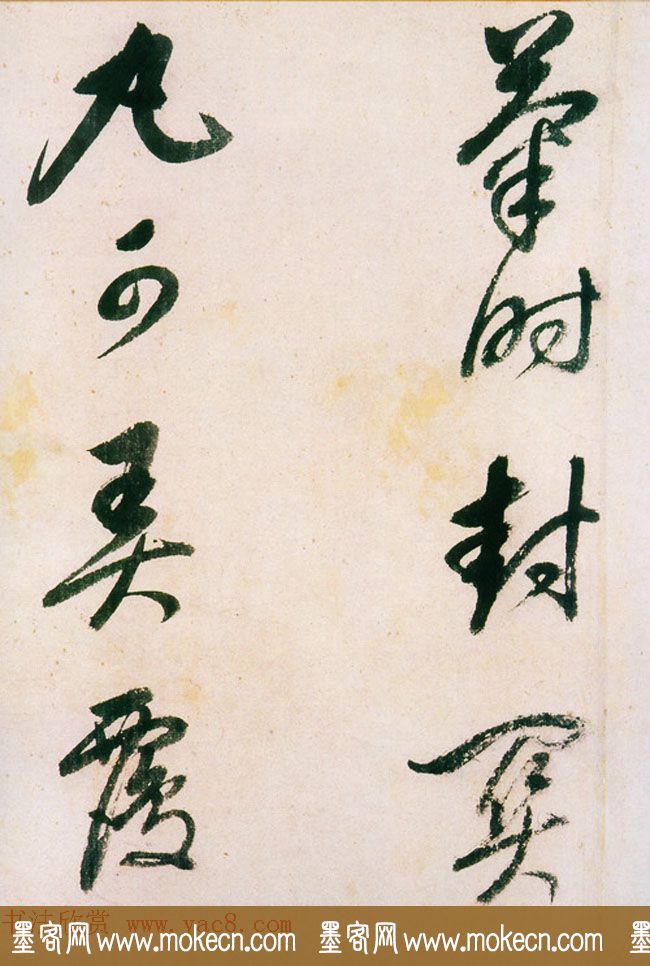 时封関
丸可笑覆
书法欣赏 www.yac8.com
墨客网 www.mokecn.com 墨客网 www.mokecn.com